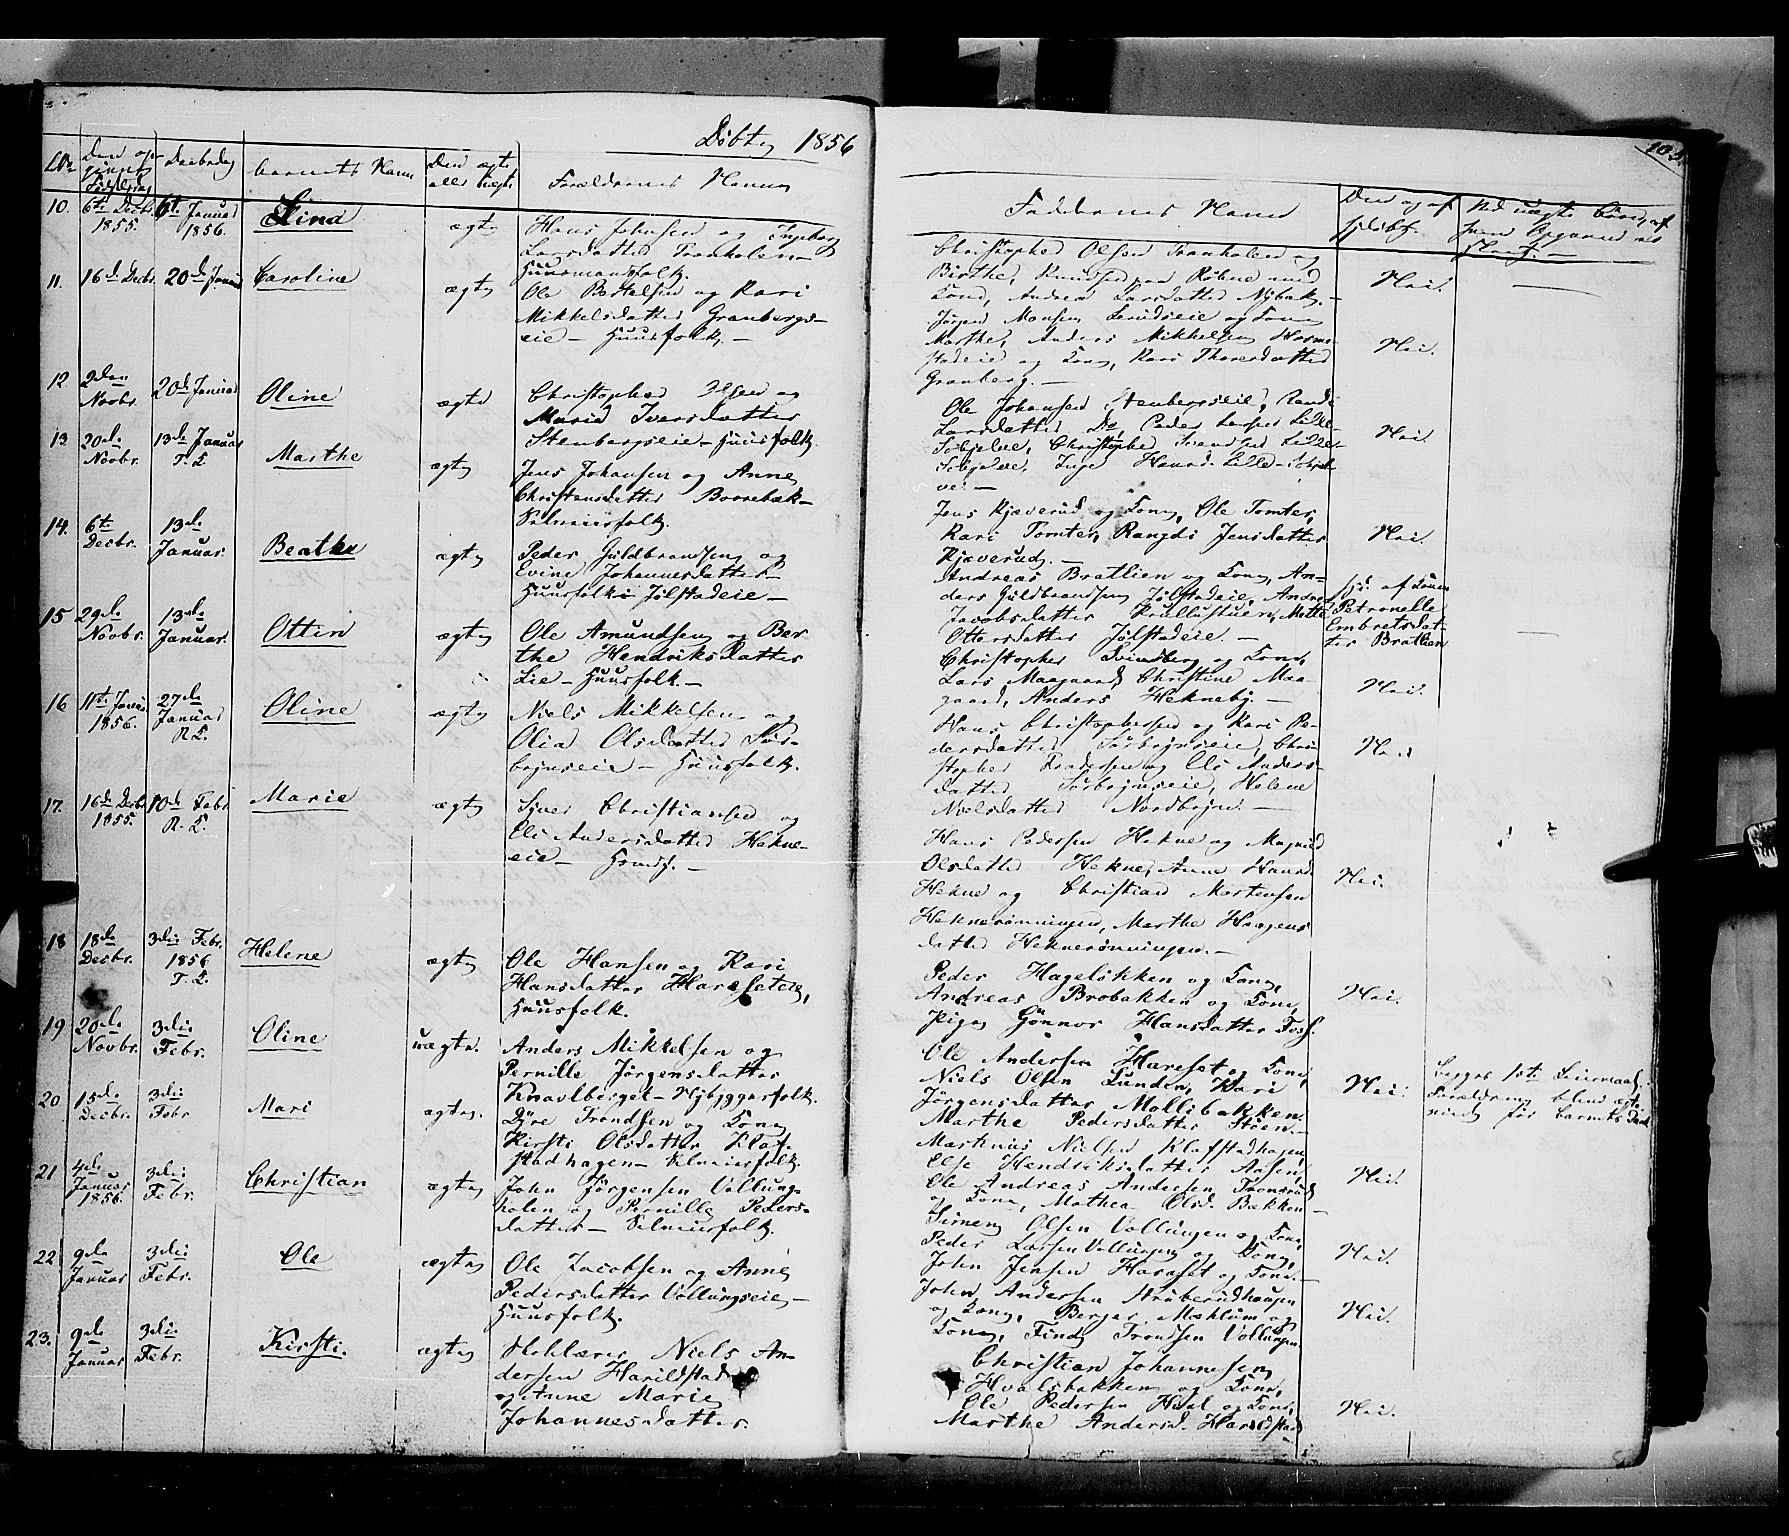 Døbte 1856
10. 6te Decbr. 1855. 6te Januar 1856. Lina ægte Hans Johnsen og Ingeborg
Larsdatter Tranholen
Huusmandsfolk.
11. 16de Decbr. 20de Januar Caroline ægte Ole Bertelsen og Kari
Mikkelsdatter Granbergs-
eie – Huusfolk. –
12 2den Novbr. 20de Januar Oline ægte Christopher Olsen og
Maria Iversdatter
Stenbergseie – Huusfolk.
13. 20de Novbr. 13de Januar T. K. Marthe ægte Jens Johansen og Anne
Christensdatter Borrebæk –
Selveierfolk.
14. 6te Decbr. 13de Januar. Beathe ægte Peder Guldbrandsen og
Evine Johannesdatter
Huusfolk Jølstadeie –
15 29de Novbr. 13de Januar. Ottin ægte Ole Amundsen og Ber-
the Hendriksdatter
Lie – Huusfolk. –
16 11te Januar 1856. 27de Januar R. K. Oline ægte Niels Mikkelsen og
Olia Olsdatter Sør-
brynseie – Huusfolk.
17. 16de Decbr. 1855. 10de Febr. R. K. Marie ægte Syver Christiansen og
Eli Andersdatter Hekne-
eie – Huusf. –
18 18de Decbr. 3die Febr. 1856 T. K. Helene ægte Ole Hansen og Kari
Hansdatter Harasetei,
Huusfolk.
19 20de Novbr. 3die Febr. Oline uægte. Anders Mikkelsen og
Pernille Jørgensdatter
Knavlberget – Nybyggerfolk.
20 15de Decbr. 3die Febr Mari ægte. Dyre Trondsen og Kone
Kirsti Olsdatter Klaf-
stadhagen – Selveierfolk.
21 4de Januar 1856. 3die Febr. Christian ægte John Jørgensen Vollung-
holen og Pernille Peders-
datter – Selveierfolk.
22 9de Januar 3die Febr. Ole ægte Ole Jacobsen og Anne
Pedersdatter Vollungseie –
Huusfolk.
23. 9de Januar 3die Febr. Kirsti. ægte Skolelærer Niels An-
dersen Harildstad
og Anne Marie
Johannesdatter.
Faddernes Navne
Christopher Olsen Tranholen og
Birthe, Knudsen paa Røhne med
Kone, Andrea Larsdatter Nybak. –
Nei.
Jørgen Monsen og Kone
Marthe, Anders Mikkelsen
og Kone, Kari Thoresdatter
Granberg. –
Nei.
Ole Johansen Stenbergseie, Randi
Larsdatter Do, Peder Larsen Lille-
Christopher Svendsen Lille-
Inge Hansd. Lille-
Nei.
Jens Kjæverud og Kone, Ole Tomter,
Kari Tomter, Rangdi Jensdatter
Kjæverud. –
Nei.
Andreas Bratlien og Kone, An-
ders Guldbrandsen Jølstadeie, Andrea
Jacobsdatter Mette
Ottersdatter Jølstadeie. –
hjd. af Konen
Petronelle
Embretsdat-
ter Bratlien
Christopher Svindberg og Kone,
Lars Maagaard, Christine Maa-
gaard, Anders Hekneby. –
Nei.
Hans Christophersen og Kari Pe-
dersdatter Sørbrynseie, Chri-
stopher og Eli Anders-
datter Sørbrynseie, Helene
Nielsdatter Nordbryn. –
Nei
Hans Pedersen Hekne og Magnild
Olsdatter Hekne, Anne Hansd.
Hekne og Christian Mortensen
Heknerønningen, Marthe Haagens
datter Heknerønningen. –
Nei.
Peder Hageløkken og Kone,
Andreas Brobakken og Kone,
Pige Gønnor Hansdatter
Nei.
Ole Andersen Haraset og Kone,
Niels Olsen Lunden, Kari
Jørgensdatter Mollibakken
Marthe Pedersdatter Støen. –
Nei.
Begges 1ste Leiermaal.
Forældrene bleve ægte-
viede før Barnets Daab
Marthius Nielsen Klafstadhagen,
Else Hendriksdatter Aasen,
Ole Andreas Andersen Tronsrud
og Kone, Mathea Olsd. Bækken –
Nei.
Simen Olsen Vollungen og Kone
Peder Larsen Vollungen og Kone,
John Jensen Haraset og Kone. –
Nei.
John Andersen Struberudhaugen
og Kone, Berger Mæhlum og
Kone, Find Trondsen Vollungen
Nei.
Christian Johannesen
Hvalsbakken og Kone,
Ole Pedersen Hval og Kone,
Marthe Andersd. Harildstad
Nei.